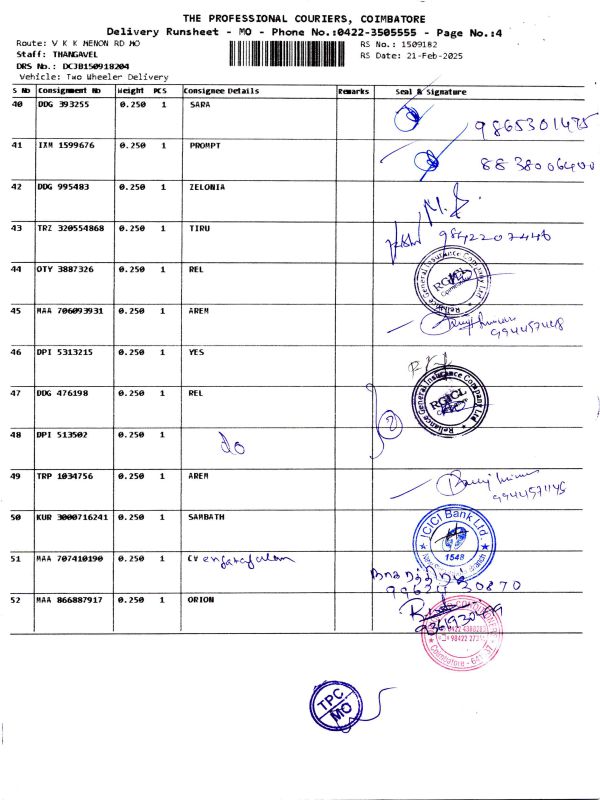 THE PROFESSIONAL COURIERS, COIMBATORE
Delivery Runsheet - MO - Phone No.:0422-3505555 - Page No.:4
Route: V K K MENON RD MO RS No.: 1509182
Staff: THANGAVEL RS Date: 21-Feb-2025
DRS No.: DCJB150918204
Vehicle: Two Wheeler Delivery
S No Consignment No Weight PCS Consignee Details Remarks Seal & Signature
40 DDG 393255 0.250 1 SARA
9865301475
41 IXM 1599676 0.250 1 PROMPT
8838006400
42 DDG 995483 0.250 1 ZELONIA
43 TRZ 320554868 0.250 1 TIRU 9842207446
44 OTY 3887326 0.250 1 REL
Reliance General Insurance Company Ltd
RGICL
45 MAA 706093931 0.250 1 AREM
46 DPI 5313215 0.250 1 YES
47 DDG 476198 0.250 1 REL
Reliance General Insurance Company Ltd
RGICL
48 DPI 513502 0.250 1 do 2
49 TRP 1034756 0.250 1 AREM
50 KUR 3000716241 0.250 1 SAMBATH
ICICI Bank Ltd
1548
51 MAA 707410190 0.250 1 CV
52 MAA 866887917 0.250 1 ORION
Coimbatore - 641
TPC
MO